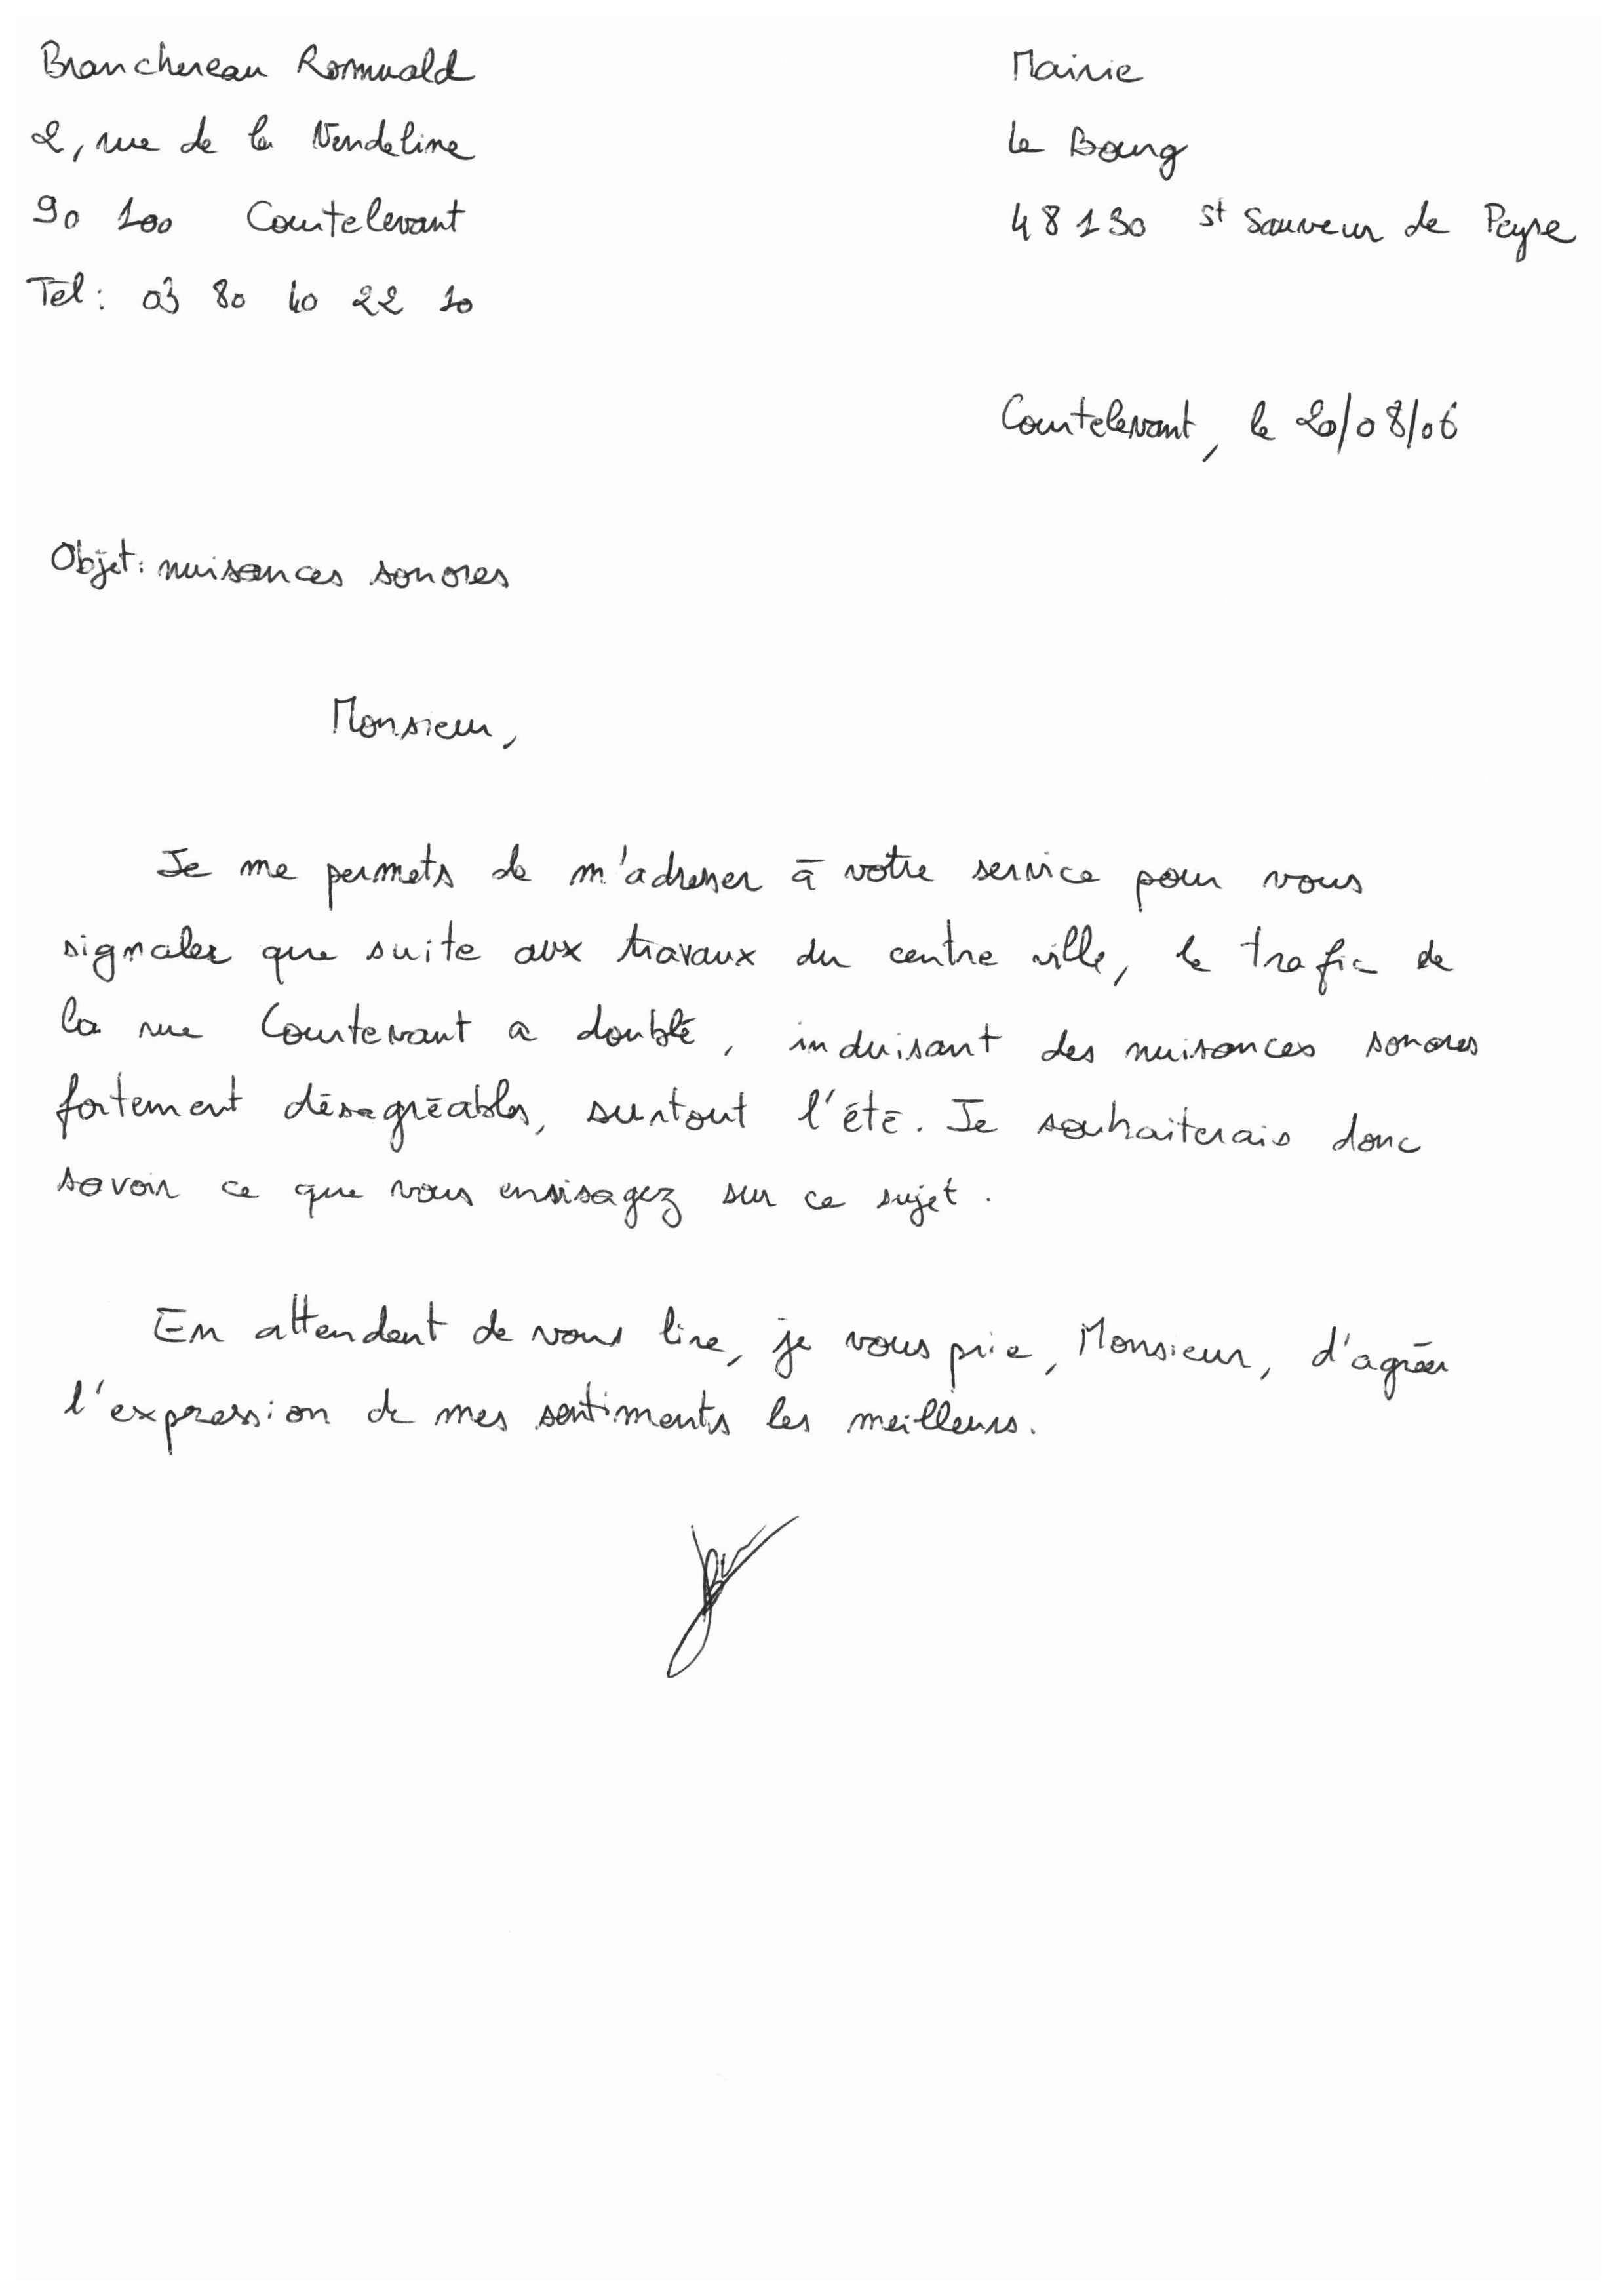 Branchereau Romuald
2, rue de la Vendeline
90 100 Courtelevant
Tél : 03 80 40 22 10
Mairie
Le Bourg
48130 St Sauveur de Peyre
Courtelevant, le 20/08/06
Objet : nuisances sonores
Monsieur,
Je me permets de m'adresser à votre service pour vous
signaler que suite aux travaux du centre ville, le trafic de
la rue Courtevant a doublé, induisant des nuisances sonores
fortement désagréables, surtout l'été. Je souhaiterais donc
savoir ce que vous envisagez sur ce sujet.
En attendant de vous lire, je vous prie, Monsieur, d'agréer
l'expression de mes sentiments les meilleurs.